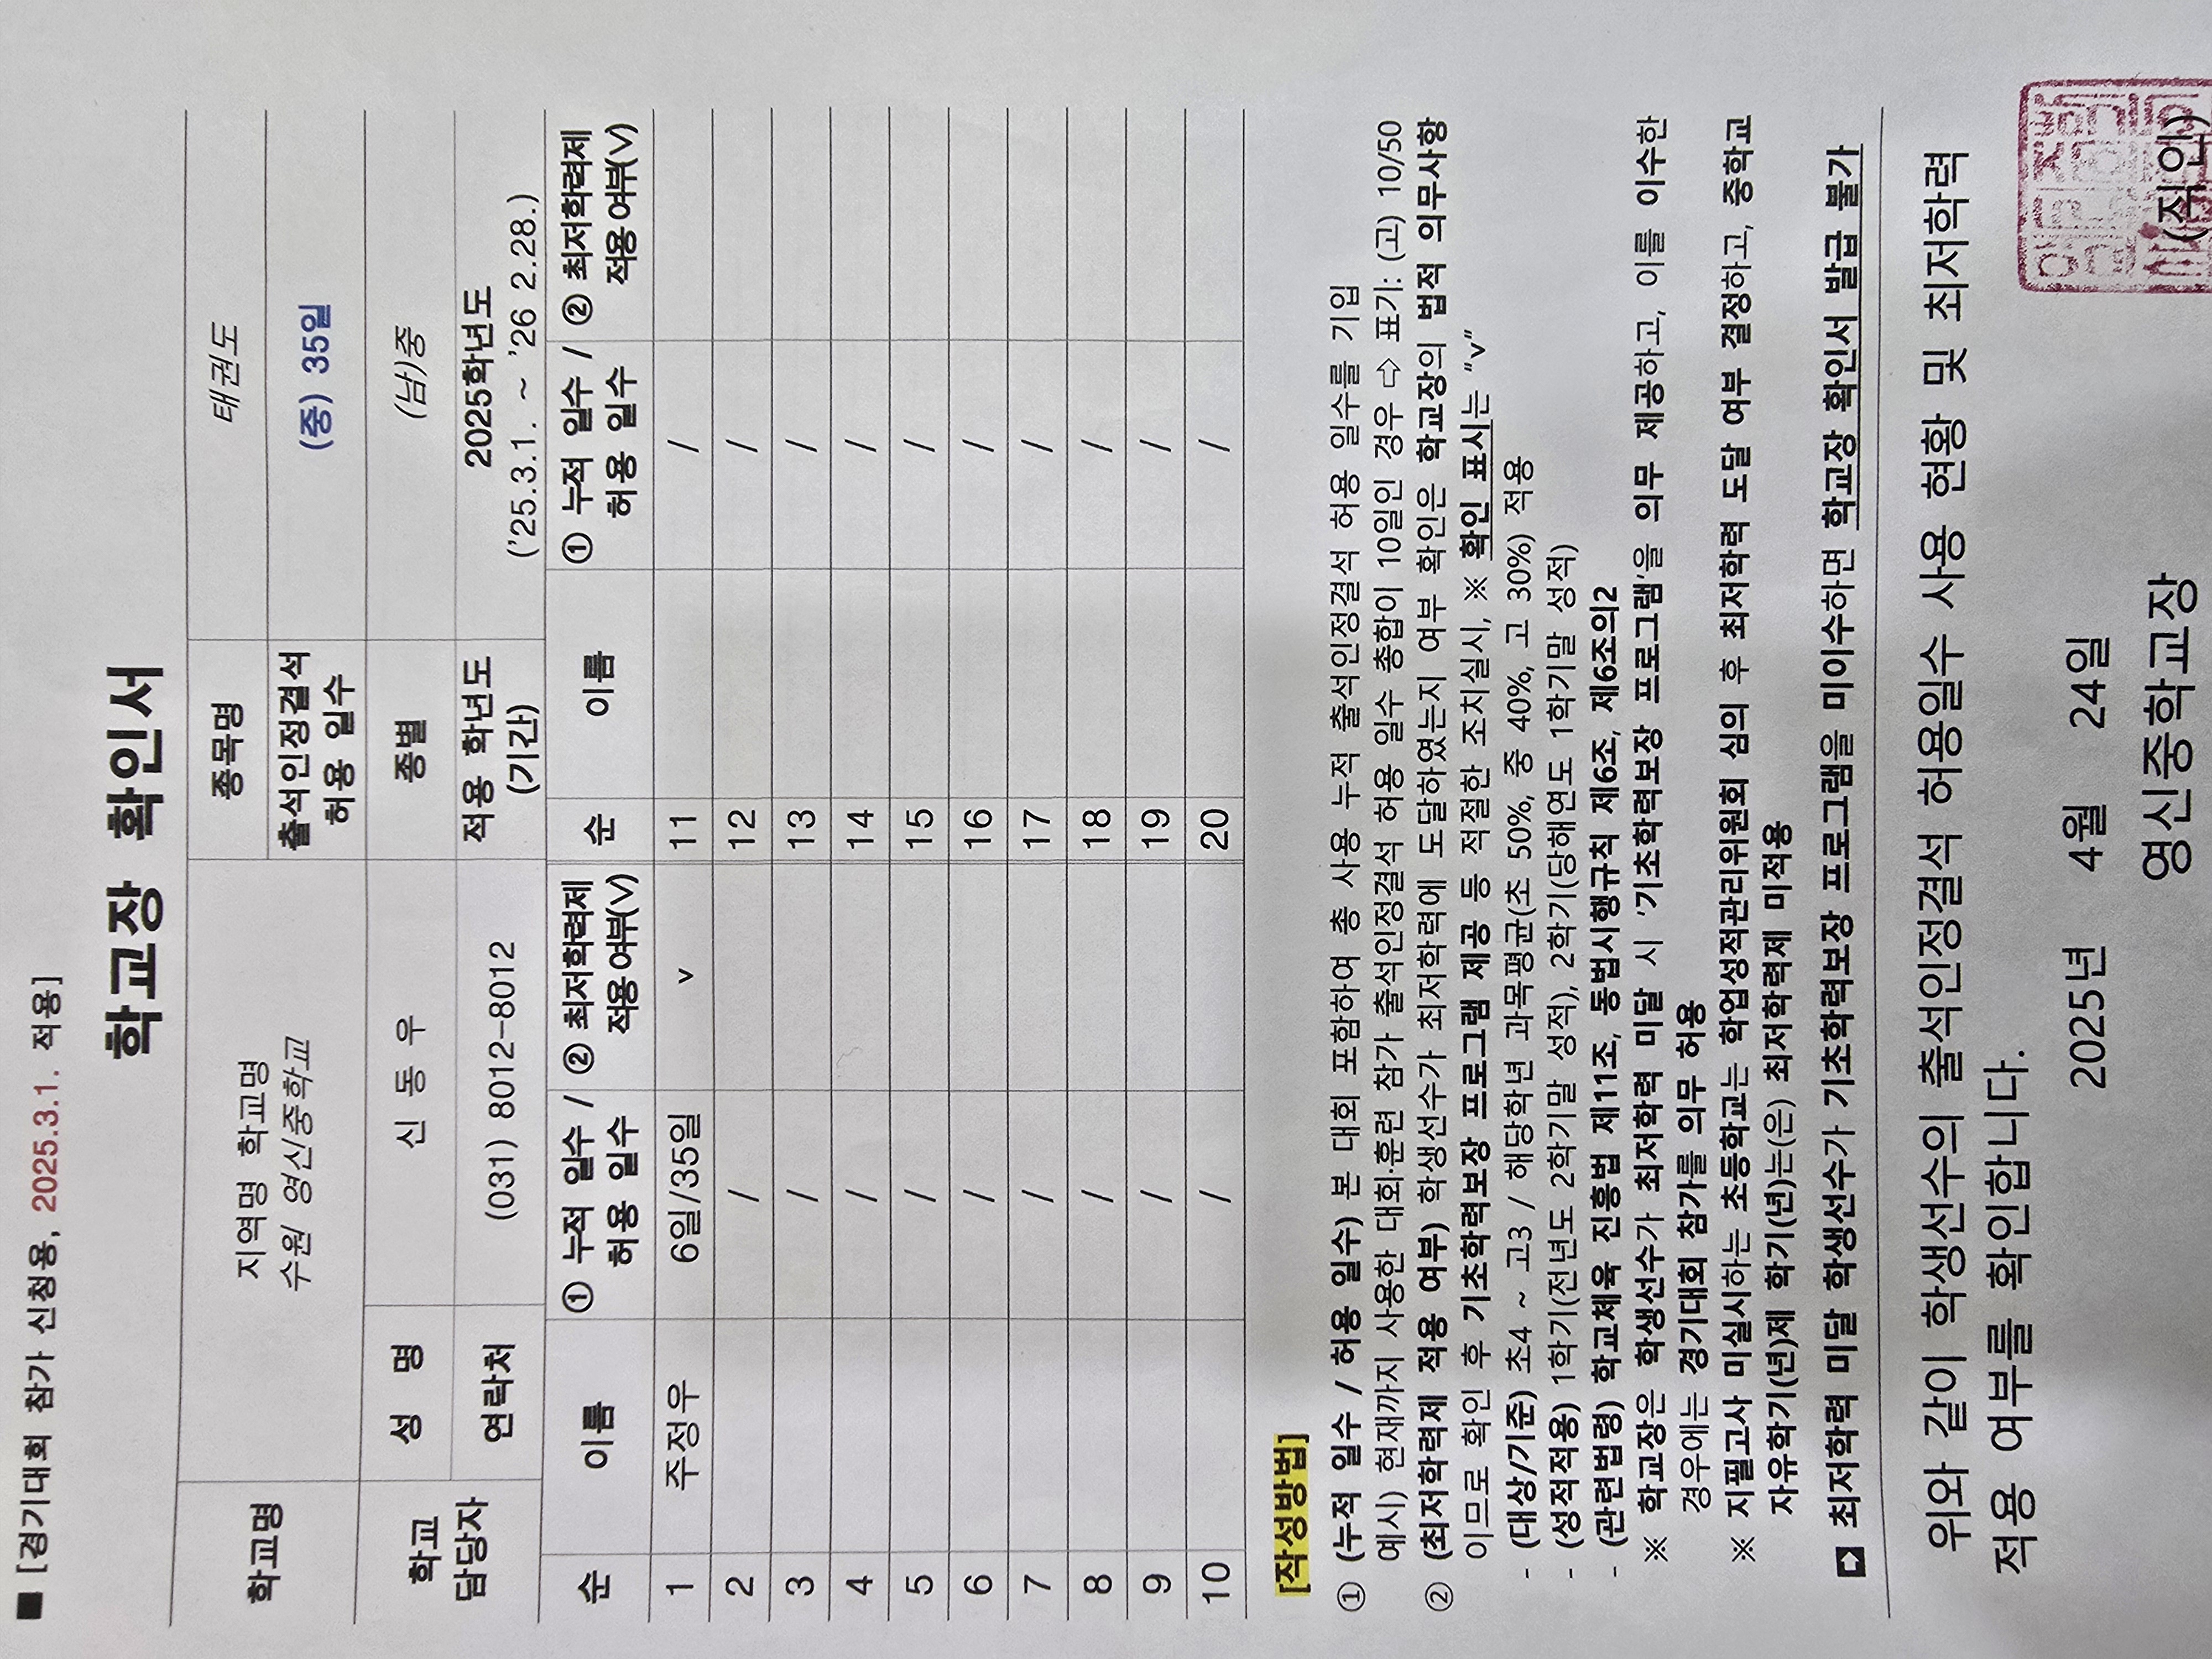 ■ [경기대회 참가 신청용, 2025.3.1. 적용]
학교장 확인서
학교명
지역명 학교명
수원 영신중학교
종목명
태권도
출석인정결석
허용 일수
(중) 35일
학교
담당자
성 명
신 동 우
종별
(남)중
연락처
(031) 8012-8012
적용 학년도
(기간)
2025학년도
('25.3.1. ~ '26 2.28.)
순 이름 ① 누적 일수 / 허용 일수 ② 최저학력제 적용여부(v) 순 이름 ① 누적 일수 / 허용 일수 ② 최저학력제 적용여부(v)
1 주정우 6일/35일 v 11 /
2 / 12 /
3 / 13 /
4 / 14 /
5 / 15 /
6 / 16 /
7 / 17 /
8 / 18 /
9 / 19 /
10 / 20 /
[작성방법]
① (누적 일수 / 허용 일수) 본 대회 포함하여 총 사용 누적 출석인정결석 허용 일수를 기입
예시) 현재까지 사용한 대회·훈련 참가 출석인정결석 허용 일수 총합이 10일인 경우 ⇨ 표기: (고) 10/50
② (최저학력제 적용 여부) 학생선수가 최저학력에 도달하였는지 여부 확인은 학교장의 법적 의무사항
이므로 확인 후 기초학력보장 프로그램 제공 등 적절한 조치실시, ※ 확인 표시는 "v"
- (대상/기준) 초4 ~ 고3 / 해당학년 과목평균(초 50%, 중 40%, 고 30%) 적용
- (성적적용) 1학기(전년도 2학기말 성적), 2학기(당해연도 1학기말 성적)
- (관련법령) 학교체육 진흥법 제11조, 동법시행규칙 제6조, 제6조의2
※ 학교장은 학생선수가 최저학력 미달 시 '기초학력보장 프로그램'을 의무 제공하고, 이를 이수한
경우에는 경기대회 참가를 의무 허용
※ 지필고사 미실시하는 초등학교는 학업성적관리위원회 심의 후 최저학력 도달 여부 결정하고, 중학교
자유학기(년)제 학기(년)는(은) 최저학력제 미적용
➡ 최저학력 미달 학생선수가 기초학력보장 프로그램을 미이수하면 학교장 확인서 발급 불가
위와 같이 학생선수의 출석인정결석 허용일수 사용 현황 및 최저학력
적용 여부를 확인합니다.
2025년 4월 24일
영신중학교장 (직인)